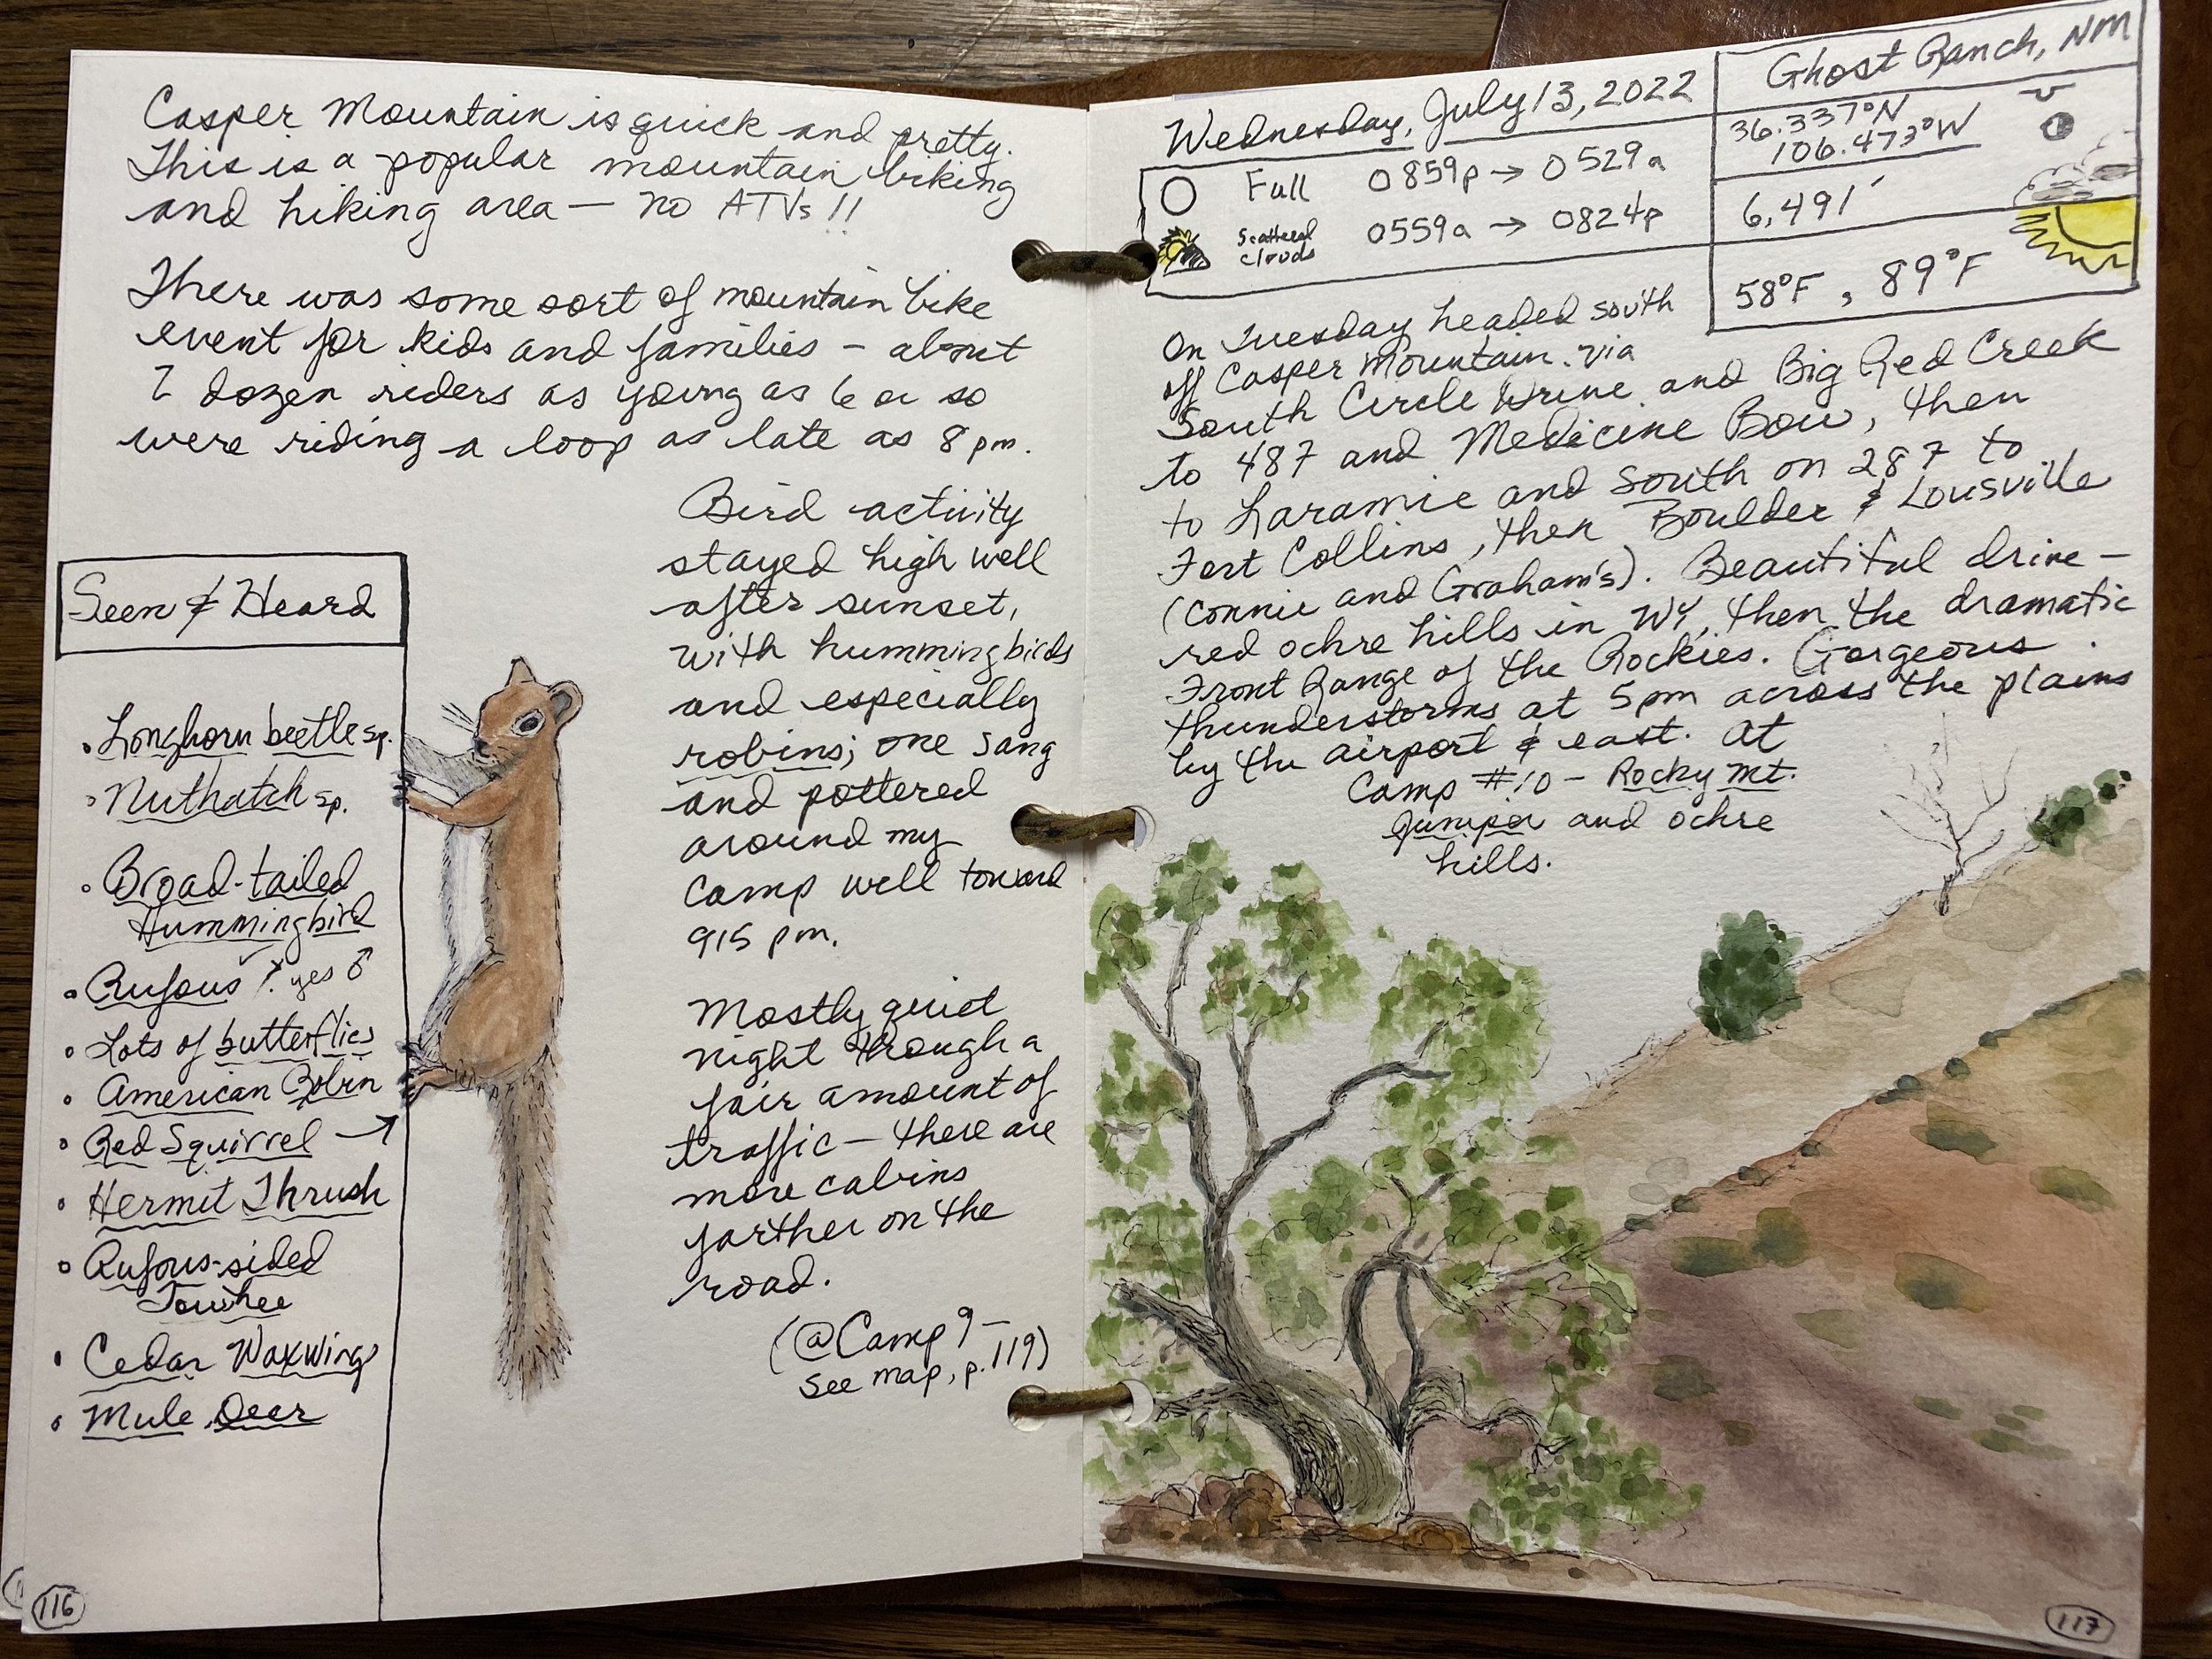 Casper Mountain is quick and pretty.
This is a popular mountain biking
and hiking area — no ATVs !!
There was some sort of mountain bike
event for kids and families – about
2 dozen riders as young as 6 or so
were riding a loop as late as 8 pm.
Bird activity
stayed high well
after sunset,
with hummingbirds
and especially
robins; one sang
and pottered
around my
camp well toward
915 pm.
Mostly quiet
night through a
fair amount of
traffic — there are
more cabins
farther on the
road.
(@Camp 9 –
see map, p. 119)
Seen & Heard
• Longhorn beetle sp.
• Nuthatch sp.
• Broad-tailed
Hummingbird
• Rufous ? yes ♂
• Lots of butterflies
• American Robin
• Red Squirrel →
• Hermit Thrush
• Rufous-sided
Towhee
• Cedar Waxwings
• Mule Deer
116
Wednesday, July 13, 2022
Full 0859p → 0529a
Scattered
clouds
0559a → 0824p
Ghost Ranch, NM
36.337°N
106.473°W
6,491'
58°F, 89°F
On Tuesday headed south
off Casper Mountain via
South Circle Drive and Big Red Creek
to 487 and Medicine Bow, then
to Laramie and South on 287 to
Fort Collins, then Boulder & Lousville
(Connie and Graham's). Beautiful drive –
red ochre hills in WY, then the dramatic
Front Range of the Rockies. Gorgeous
thunderstorms at 5pm across the plains
by the airport & east. At
Camp #10 – Rocky Mt.
Juniper and ochre
hills.
117